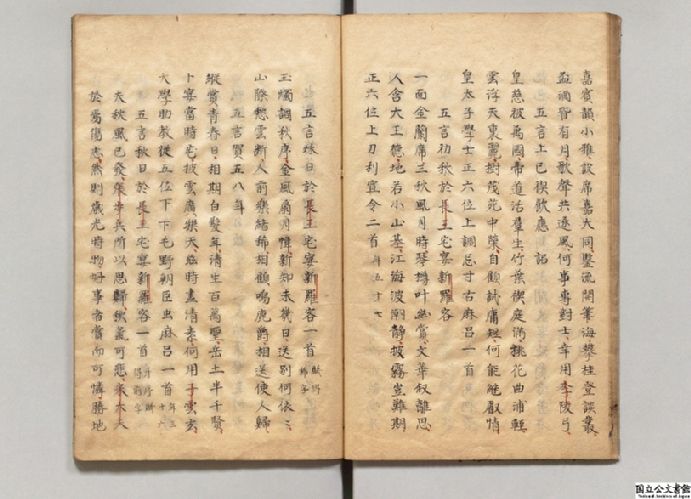 嘉賓韻小雅設席嘉大同鑒流開筆海攀桂登談叢
盃酒皆有月歌聲共逐風何事專對士幸用李陵弓
五言上巳禊飲應詔
皇慈被萬國帝道沾羣生竹葉禊庭滿桃花曲浦輕
雲浮天裏麗樹茂苑中榮自顧試庸短何能継叡情
皇太子學士正六位上調忌寸古麻呂一首
五言初秋於長王宅宴新羅客
一面金蘭席三秋風月時琴樽叶幽賞文華叙離思
人含大王德地若小山基江海波潮静披霧豈難期
正六位上刀利宣令二首年五十九
五言秋日於長王宅宴新羅客一首賦得稀字
玉燭調秋序金風扇月幃新知未幾日送別何依〻
山際愁雲断人前樂緒稀相顧鳴鹿爵相送使人歸
五言賀五八年
縱賞青春日相期白髮年清生百萬聖岳土半千賢
下宴當時宅披雲廣樂天茲時盡清素何用子雲玄
大學助教從五位下下毛野朝臣虫麻呂一首年三十六
五言秋日於長王宅宴新羅客一首并序賦得前字
夫秋風已發張步兵所以思歸秋氣可悲宋大夫
於焉傷志然則歳光時物好事者賞而可憐勝地
国立公文書館
National Archives of Japan